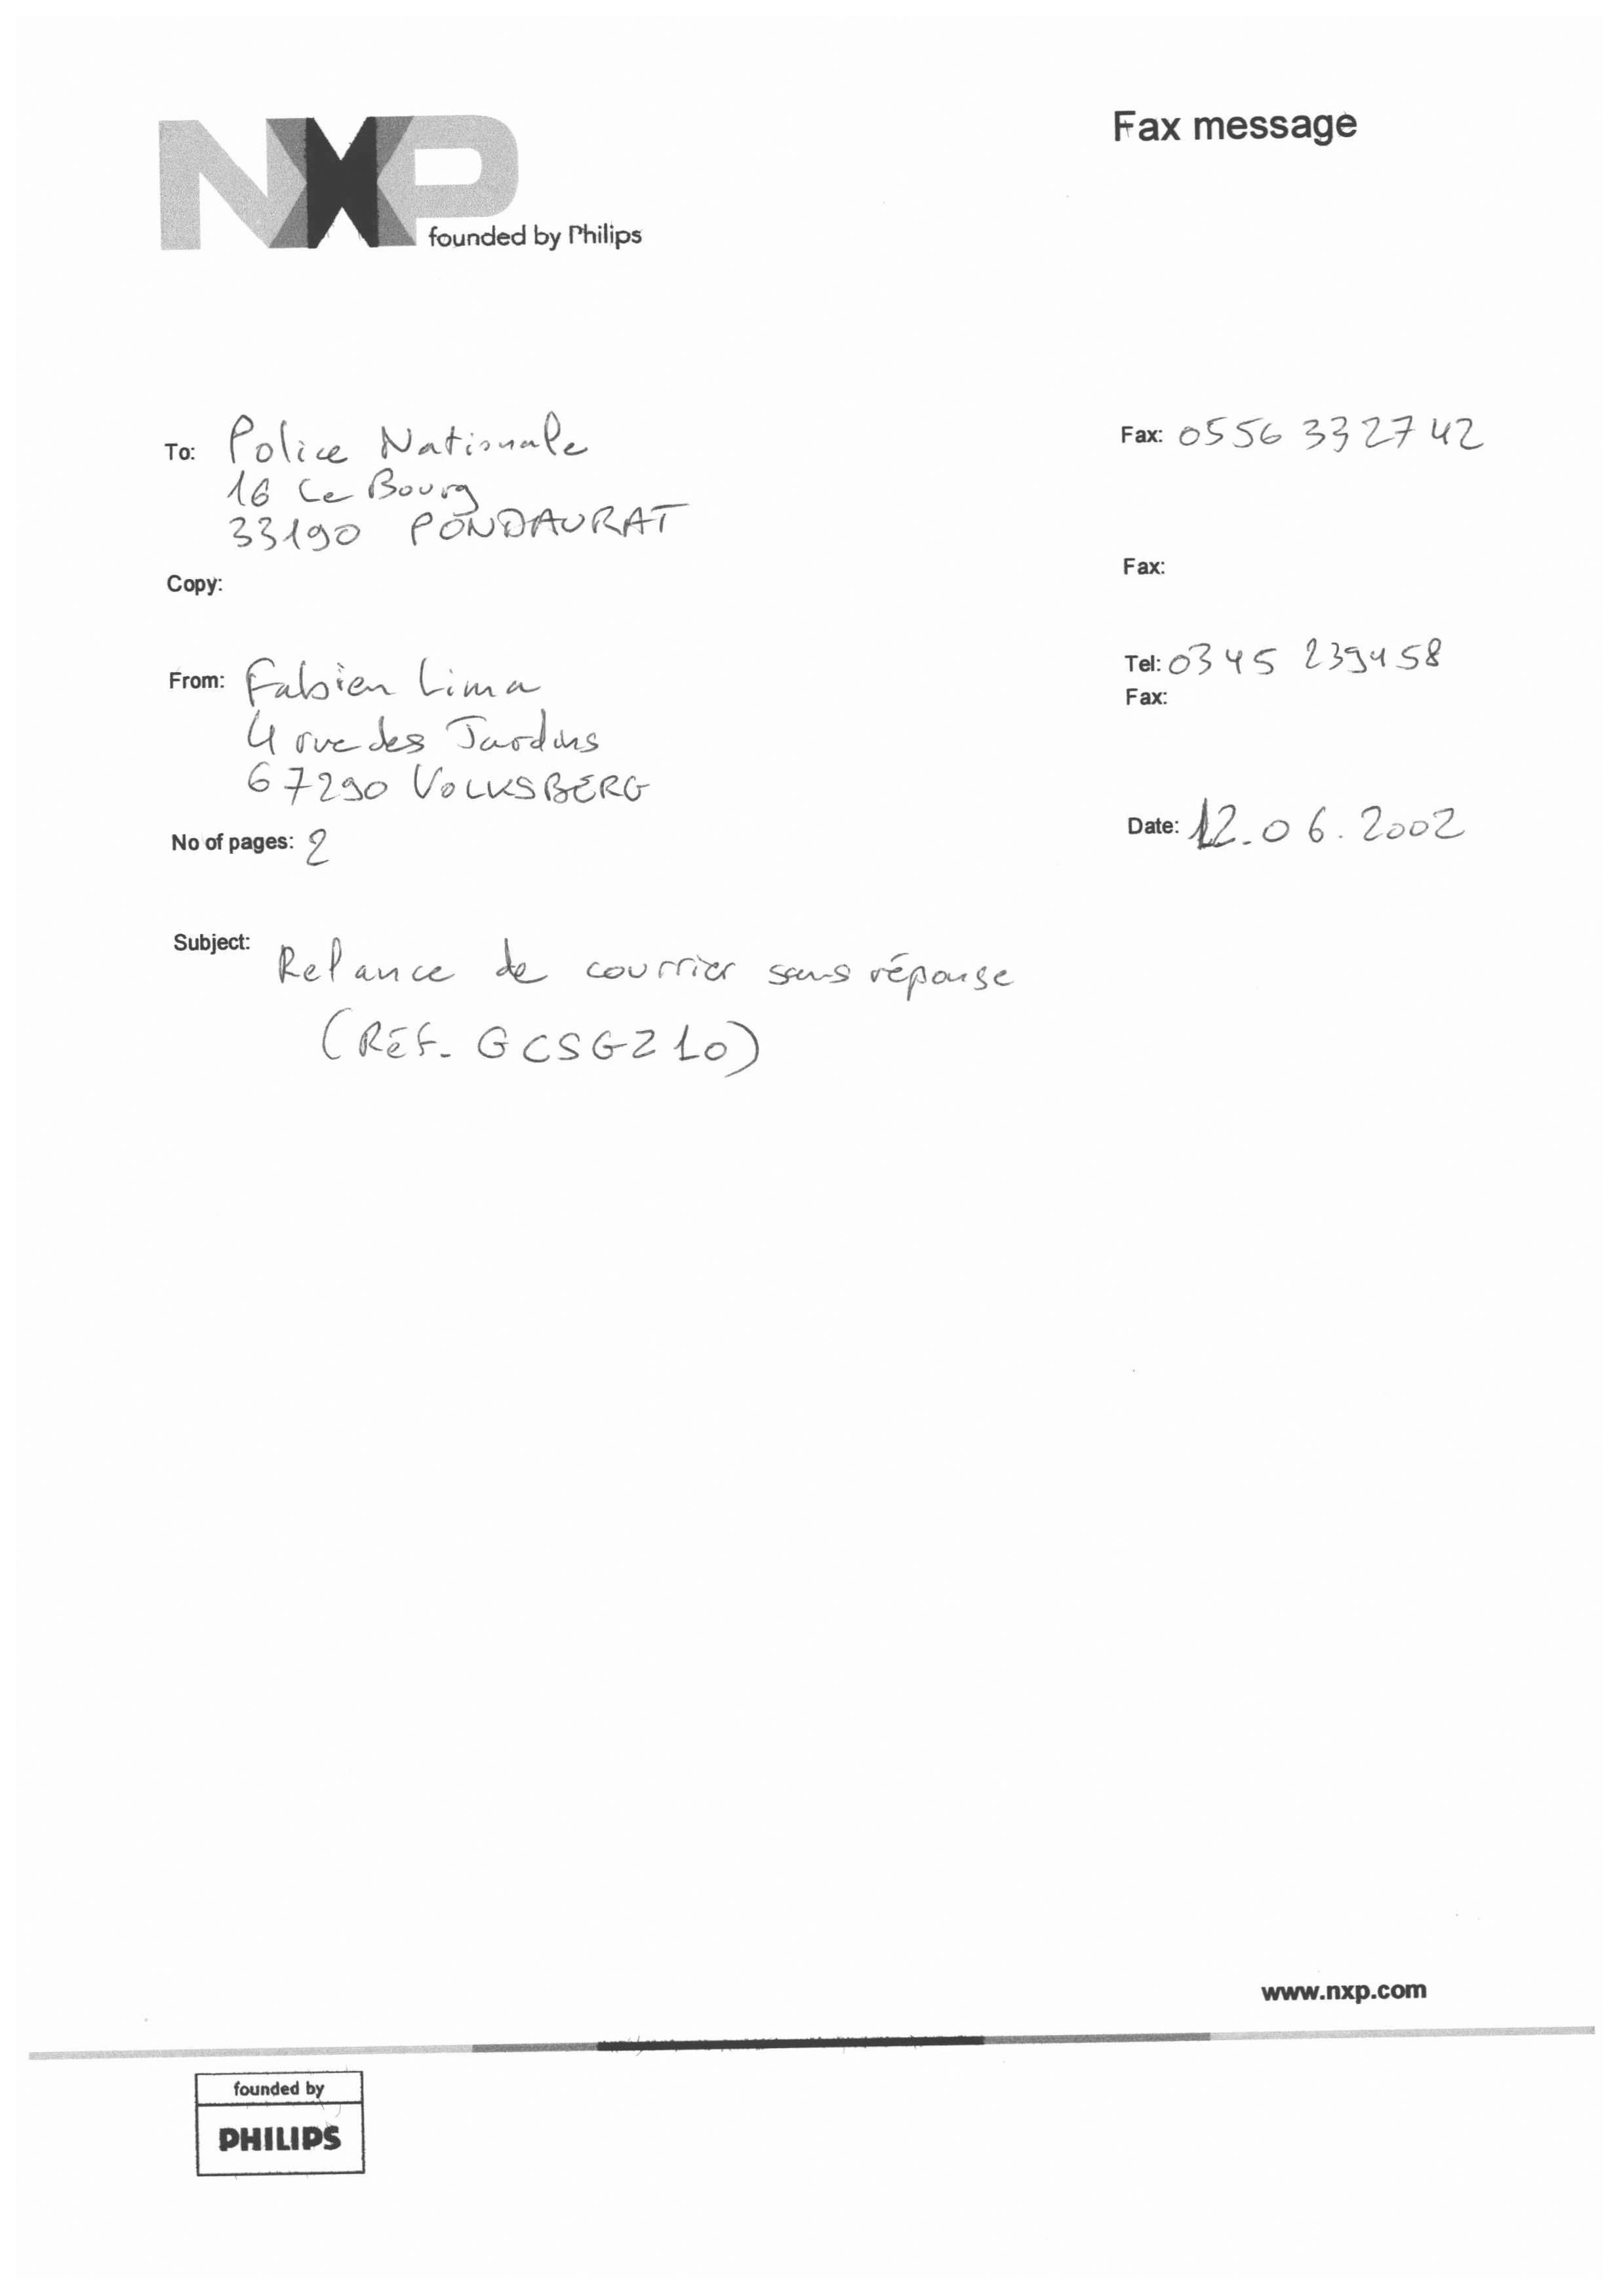 NXP
founded by Philips
Fax message
To: Police Nationale
16 Le Bourg
33190 PONDAURAT
Fax: 0556 332742
Copy:
Fax:
From: Fabien Lima
4 rue des Jardins
67290 VOLKSBERG
Tel: 0345 239458
Fax:
No of pages: 2
Date: 12.06.2002
Subject: Relance de courrier sans réponse
(Réf. GCSGZ10)
www.nxp.com
founded by
PHILIPS